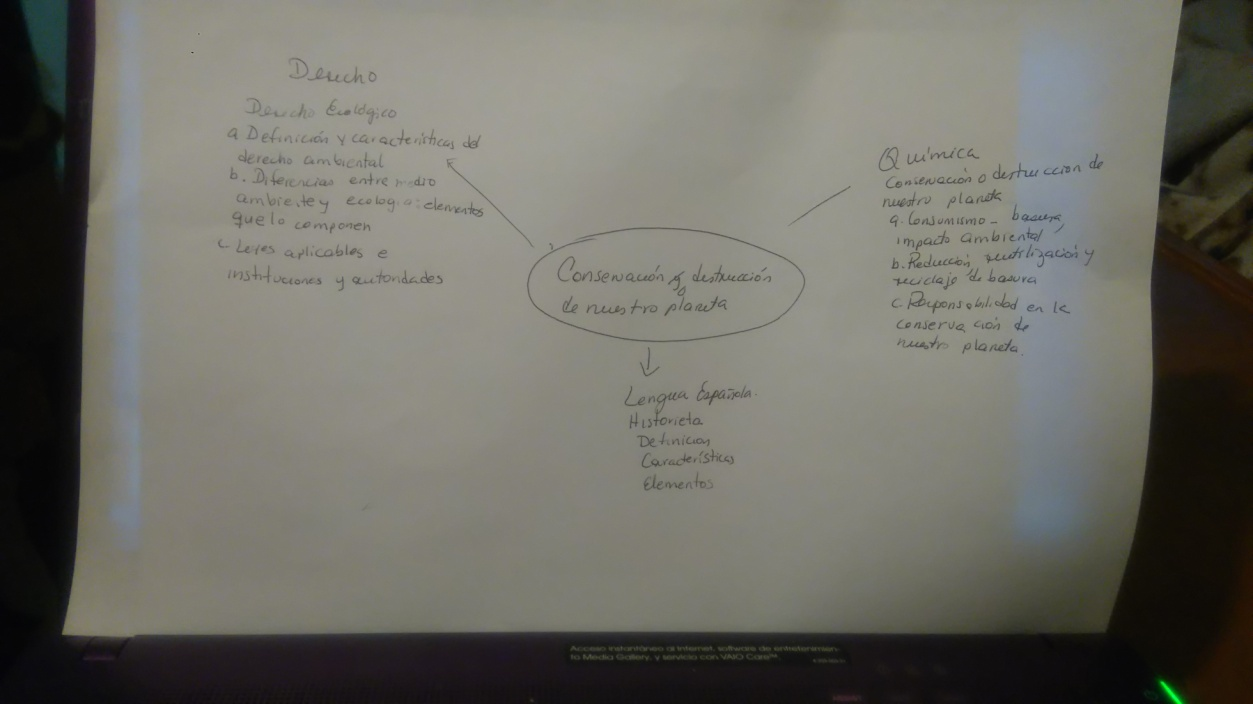 Derecho
Derecho Ecológico
a Definición y características del
derecho ambiental
b. Diferencias entre medio
ambiente y ecologia: elementos
que lo componen
c Leyes aplicables e
instituciones y autoridades
Conservación o destrucción
de nuestro planeta
Química
Conservación o destruccion de
nuestro planeta
a. Consumismo - basura,
impacto ambiental
b. Reducción reutilización y
reciclaje de basura
c. Responsabilidad en la
conservación de
nuestro planeta.
Lengua Española.
Historieta
Definicion
Características
Elementos
Acceso instantáneo al Internet, software de entretenimien-
to Media Gallery, y servicio con VAIO Care™.